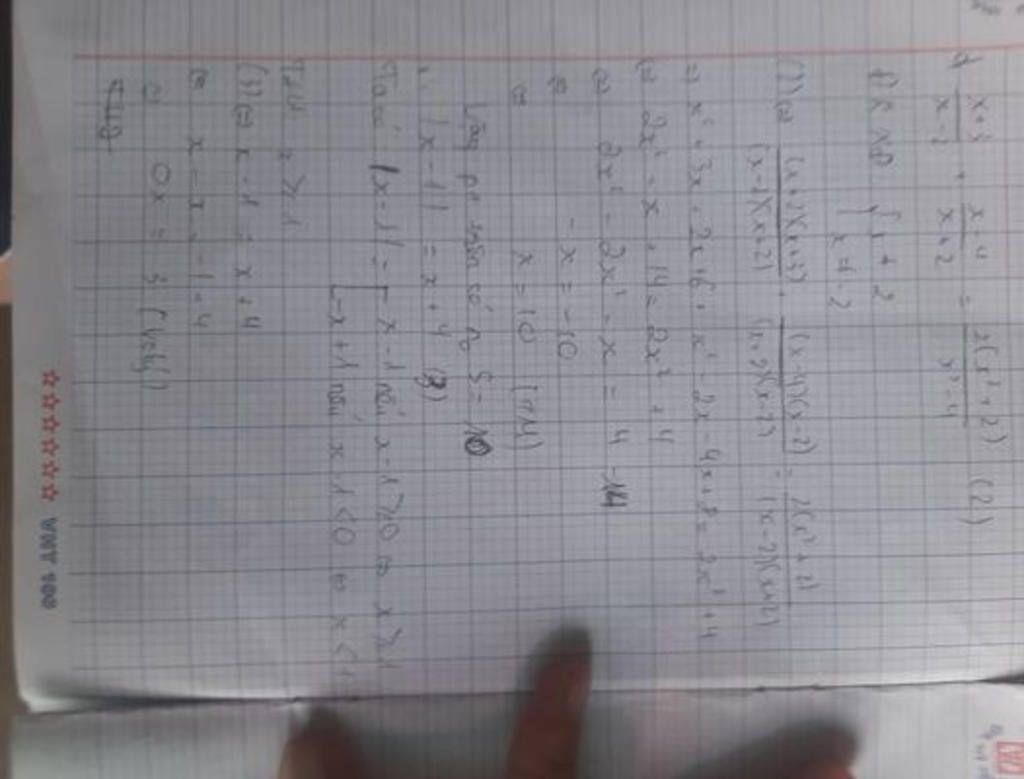 d) x+3/x-2 + x-4/x+2 = 2(x²+2)/x²-4 (2)
ĐKXĐ { x ≠ 2
x ≠ -2
(2) ⇔ (x+2)(x+3)/(x-2)(x+2) + (x-4)(x-2)/(x+2)(x-2) = 2(x²+2)/(x-2)(x+2)
⇒ x² + 3x + 2x + 6 + x² - 2x - 4x + 8 = 2x² + 4
⇔ 2x² - x + 14 = 2x² + 4
⇔ 2x² - 2x² - x = 4 - 14
⇔ -x = -10
⇔ x = 10 (TM)
Vậy pt trên có no S = 10
|x-1| = x + 4 (3)
Ta có |x-1| = [ x-1 nếu x-1 ≥ 0 ⇔ x ≥ 1
-x+1 nếu x-1 < 0 ⇔ x < 1
x ≥ 1
(3) ⇔ x - 1 = x + 4
⇔ x - x = 1 + 4
⇔ 0x = 5
☆☆☆☆☆☆ VWT 100